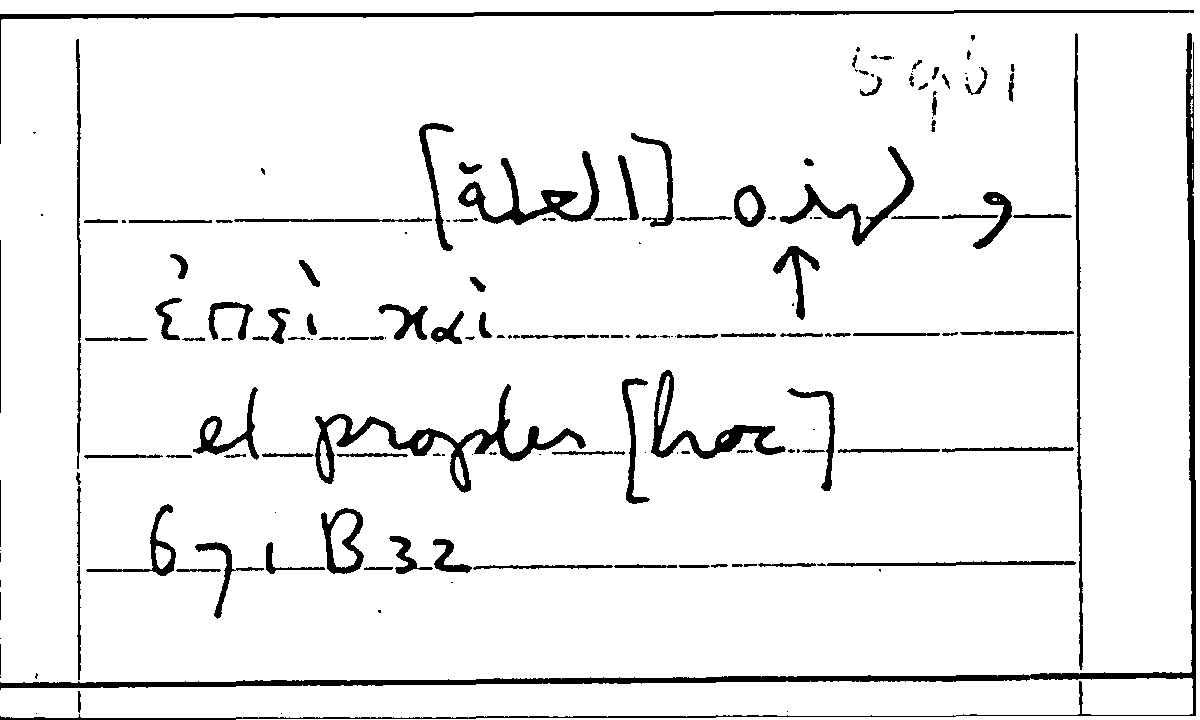 59b1
و لهذه [العلة]
↑
ἐπεὶ καὶ
et propter [hoc]
671 B32